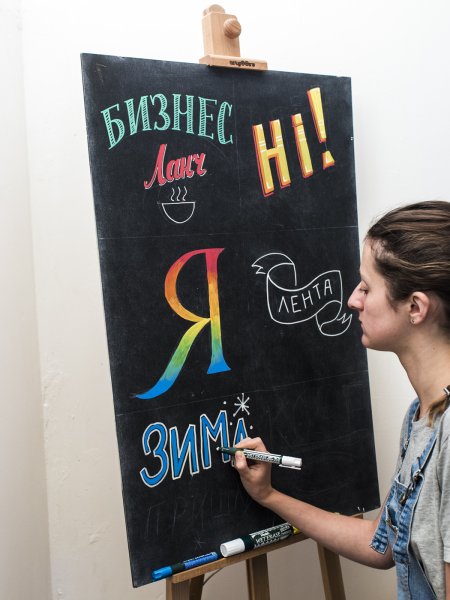 БИЗНЕС
Ланч
Hi!
Я
ЛЕНТА
ЗИМА